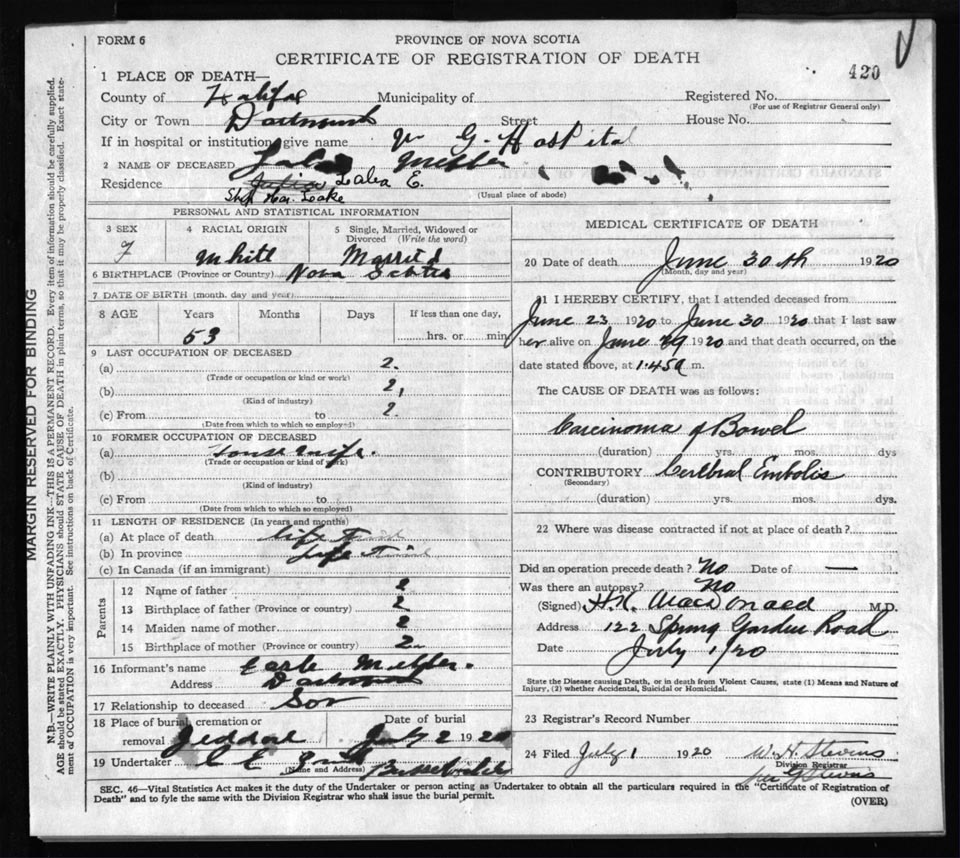 FORM 6
PROVINCE OF NOVA SCOTIA
CERTIFICATE OF REGISTRATION OF DEATH
420
1 PLACE OF DEATH—
County of Halifax Municipality of
Registered No.
(For use of Registrar General only)
City or Town Dartmouth Street House No.
If in hospital or institution, give name V G. Hospital
2 NAME OF DECEASED
Lalea E.
Residence Ship Har. Lake
(Usual place of abode)
PERSONAL AND STATISTICAL INFORMATION
3 SEX
F
4 RACIAL ORIGIN
White
5 Single, Married, Widowed or Divorced (Write the word)
Married
6 BIRTHPLACE (Province or Country) Nova Scotia
7 DATE OF BIRTH (month, day and year)
8 AGE Years Months Days If less than one day,
53 hrs. or min.
9 LAST OCCUPATION OF DECEASED
(a) ?
(Trade or occupation or kind or work)
(b) ?
(Kind of industry)
(c) From to ?
(Date from which to which so employed)
10 FORMER OCCUPATION OF DECEASED
(a) House wife.
(Trade or occupation or kind of work)
(b)
(Kind of industry)
(c) From to
(Date from which to which so employed)
11 LENGTH OF RESIDENCE (In years and months)
(a) At place of death life time
(b) In province life time
(c) In Canada (if an immigrant)
Parents
12 Name of father ?
13 Birthplace of father (Province or country) ?
14 Maiden name of mother ?
15 Birthplace of mother (Province or country) ?
16 Informant's name Earle
Address Dartmouth
17 Relationship to deceased Son
18 Place of burial, cremation or removal Jeddore
Date of burial July 2 1920
19 Undertaker
(Name and Address)
MEDICAL CERTIFICATE OF DEATH
20 Date of death June 30th 1920
(Month, day and year)
21 I HEREBY CERTIFY, that I attended deceased from
June 23 1920 to June 30 1920 that I last saw
her alive on June 29 1920 and that death occurred, on the
date stated above, at 1.45 a m.
The CAUSE OF DEATH was as follows:
Carcinoma of Bowel
(duration) yrs. mos. dys
CONTRIBUTORY Cerebral Embolis
(Secondary)
(duration) yrs. mos. dys.
22 Where was disease contracted if not at place of death?
Did an operation precede death? No Date of —
Was there an autopsy? No
(Signed) H.K. MacDonald M.D.
Address 122 Spring Garden Road
Date July 1/20
State the Disease causing Death, or in death from Violent Causes, state (1) Means and Nature of
Injury, (2) whether Accidental, Suicidal or Homicidal.
23 Registrar's Record Number
24 Filed July 1 1920 W. H. Stevens
Division Registrar
Stevens
SEC. 46—Vital Statistics Act makes it the duty of the Undertaker or person acting as Undertaker to obtain all the particulars required in the "Certificate of Registration of
Death" and to fyle the same with the Division Registrar who shall issue the burial permit.
(OVER)
MARGIN RESERVED FOR BINDING
N.B.—WRITE PLAINLY WITH UNFADING INK—THIS IS A PERMANENT RECORD. Every item of information should be carefully supplied.
AGE should be stated EXACTLY. PHYSICIANS should STATE CAUSE OF DEATH in plain terms, so that it may be properly classified. Exact state-
ment of OCCUPATION is very important. See instructions on back of Certificate.